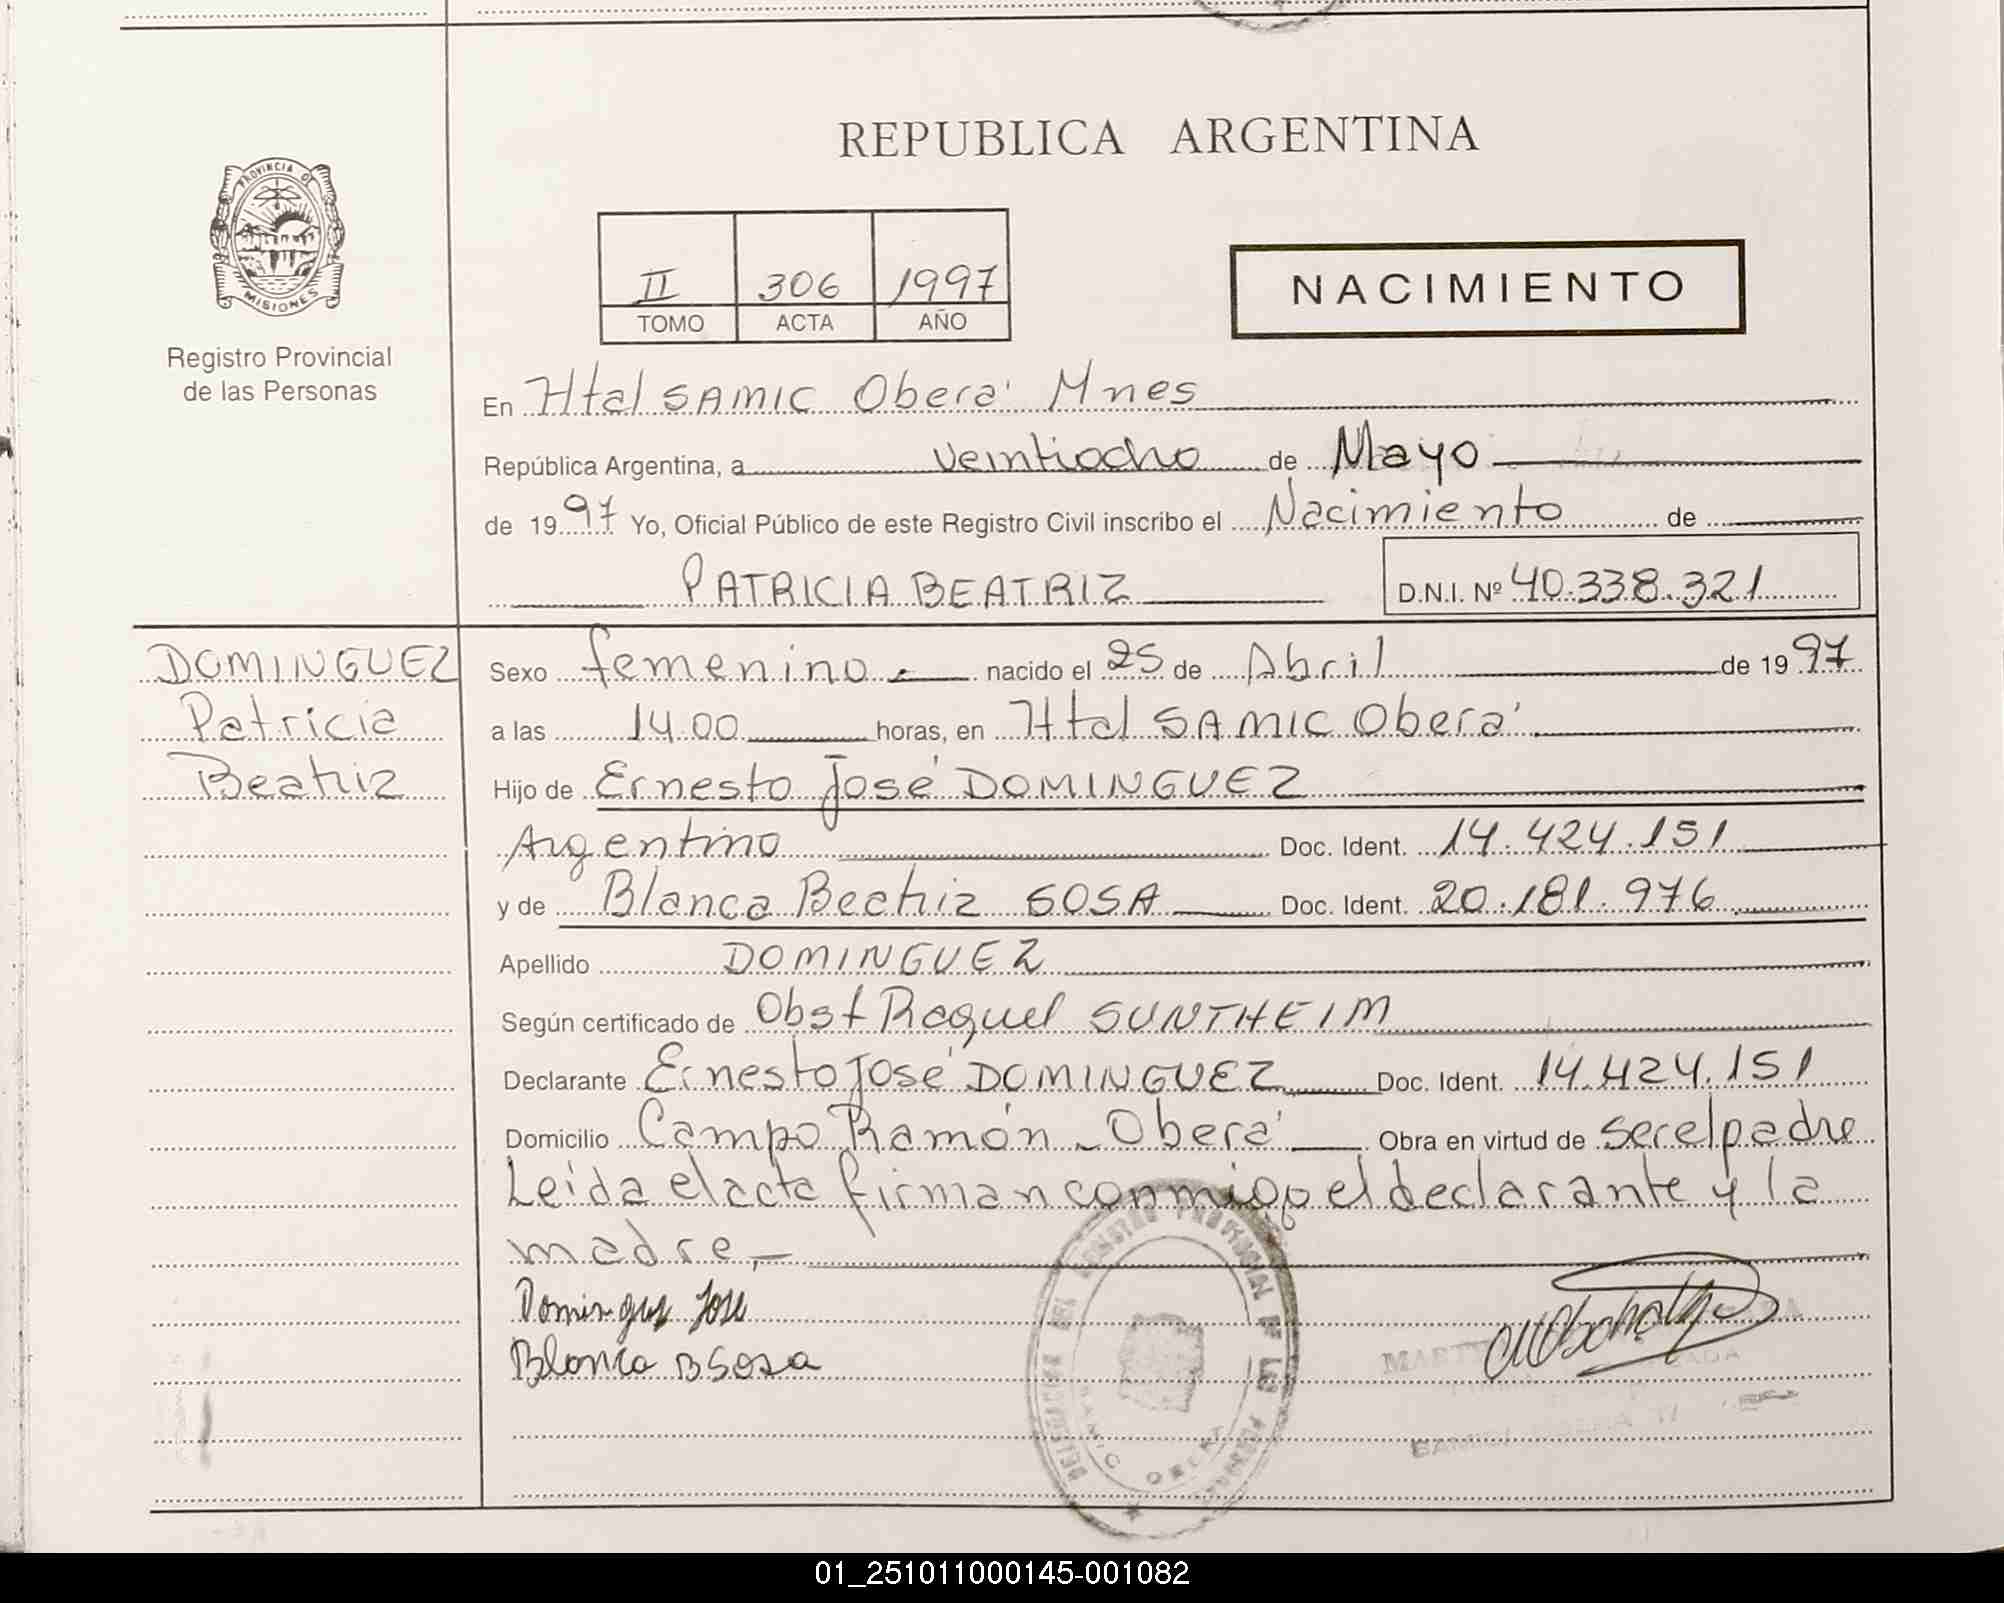 REPUBLICA ARGENTINA
PROVINCIA DE
MISIONES
Registro Provincial
de las Personas
II 306 1997
TOMO ACTA AÑO
NACIMIENTO
En Htal SAMIC Oberá Mnes
República Argentina, a veintiocho de Mayo
de 1997 Yo, Oficial Público de este Registro Civil inscribo el Nacimiento de
PATRICIA BEATRIZ D.N.I. Nº 40.338.321
DOMINGUEZ
Patricia
Beatriz
Sexo femenino.- nacido el 25 de Abril de 1997
a las 14.00 horas, en Htal SAMIC Oberá
Hijo de Ernesto José DOMINGUEZ
Argentino Doc. Ident. 14.424.151
y de Blanca Beatriz SOSA Doc. Ident. 20.181.976
Apellido DOMINGUEZ
Según certificado de Obst Raquel SUNTHEIM
Declarante Ernesto José DOMINGUEZ Doc. Ident. 14.424.151
Domicilio Campo Ramón - Oberá Obra en virtud de ser el padre
Leída el acta firman conmigo el declarante y la
madre.-
Dominguez José
Blanca B Sosa
DELEGACION DEL REGISTRO PROVINCIAL DE LAS
SAMIC OBERA
01_251011000145-001082